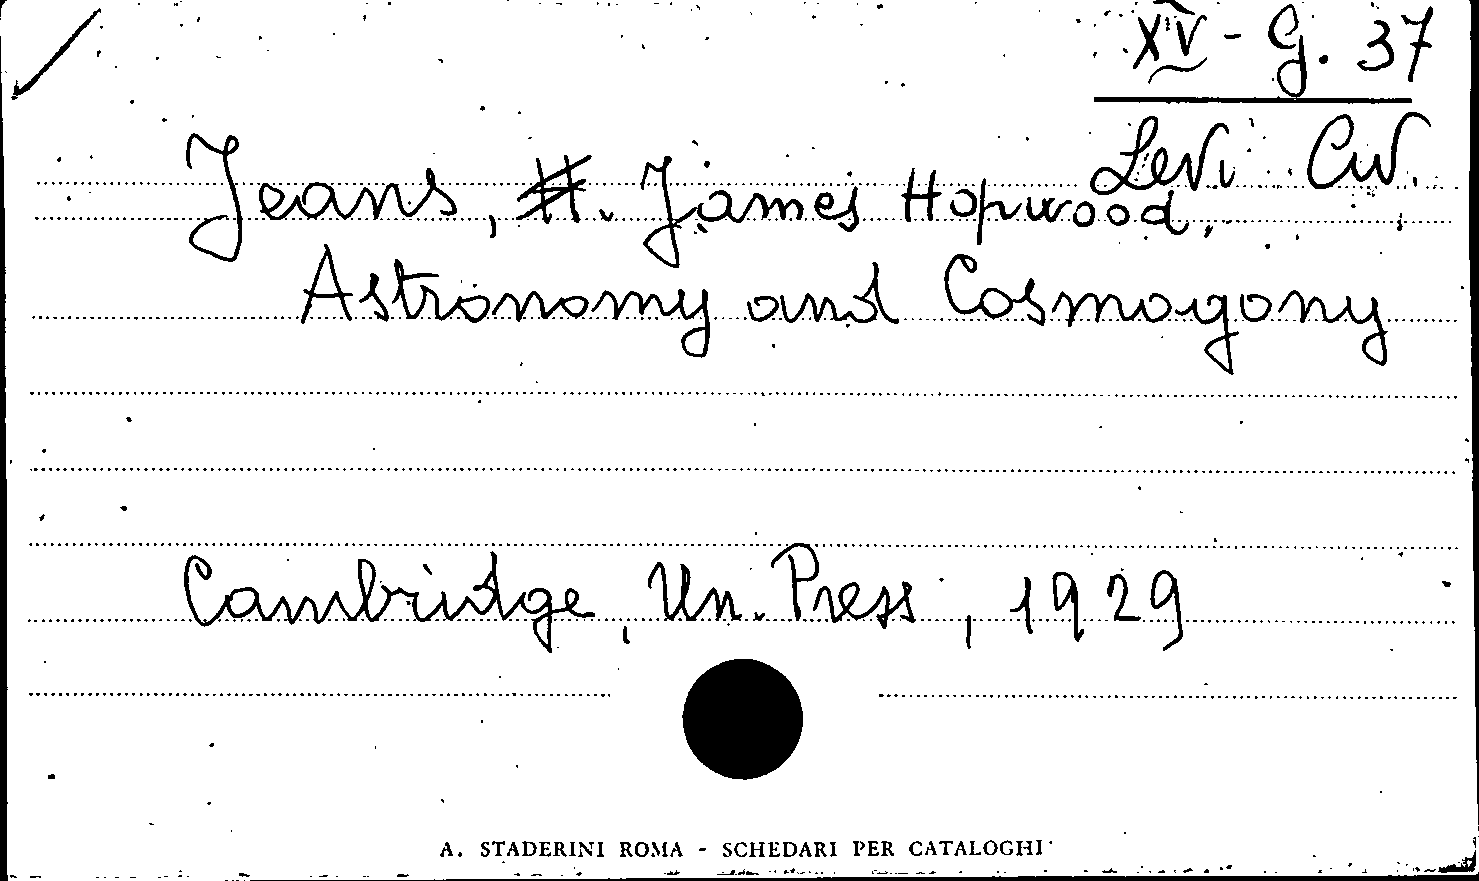 XV - G. 37
Levi Civ.
Jeans, H. James Hopwood.
Astronomy and Cosmogony
Cambridge, Un. Press, 1929
A. STADERINI ROMA - SCHEDARI PER CATALOGHI